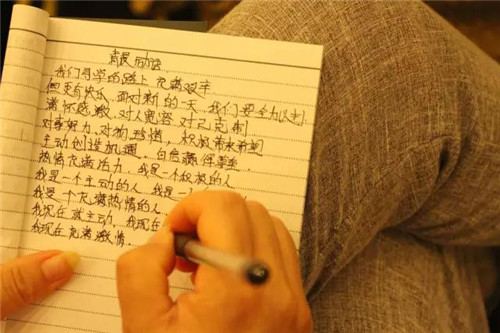 我们同学的路上充满艰辛
但更有快乐，面对新的一天，我们要全力以赴
满怀感激，对人宽容对己克制
对事努力，对物珍惜，积极带来希望
主动创造机遇，自信赢得
热情充满活力，我是一个积极的人
我是一个主动的人，我是一
我是一个充满热情的人
我现在就主动，我现在
我现在充满激情．